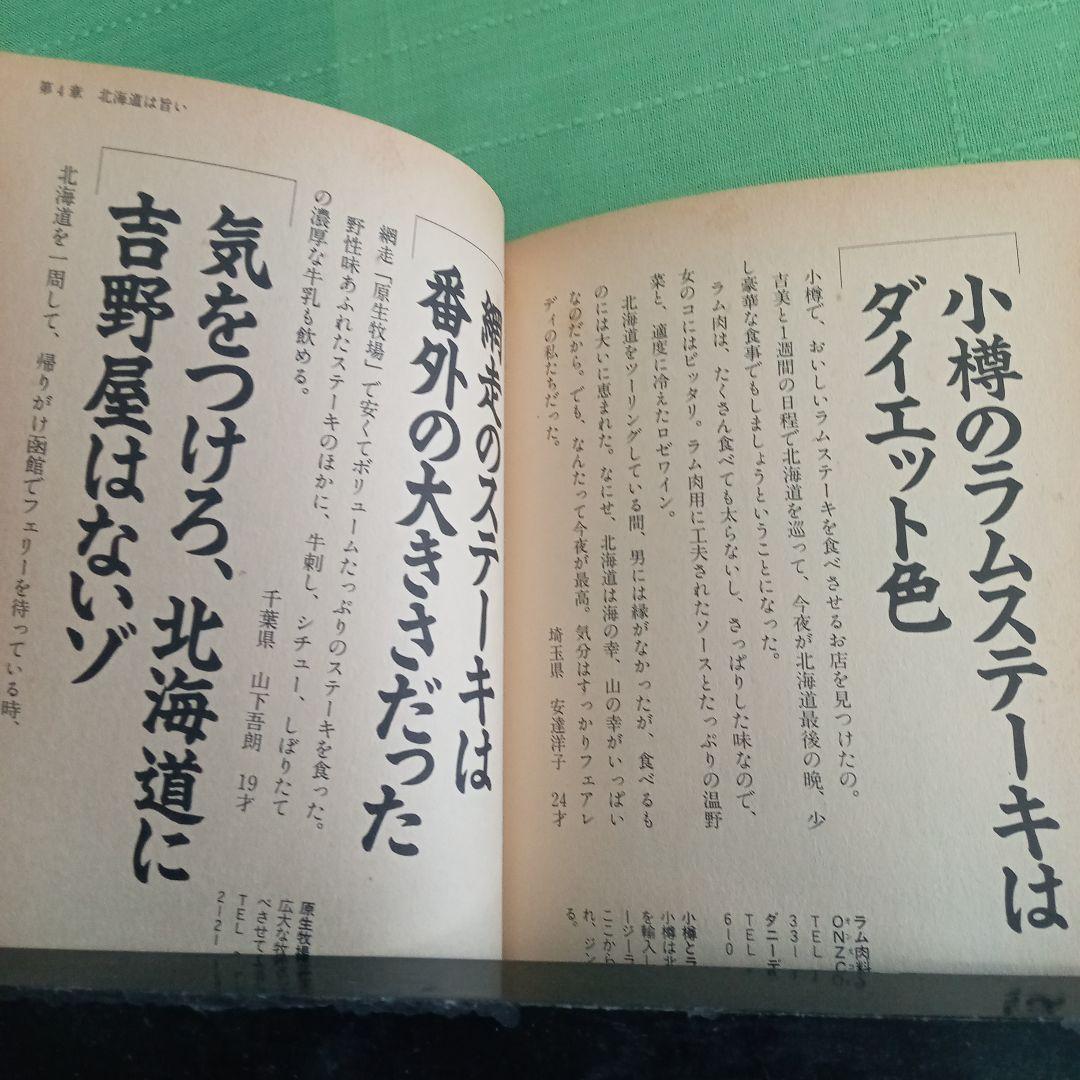 小樽のラムステーキは
ダイエット色
小樽で、おいしいラムステーキを食べさせるお店を見つけたの。
吉美と1週間の日程で北海道を巡って、今夜が北海道最後の晩、少
し豪華な食事でもしましょうということになった。
ラム肉は、たくさん食べても太らないし、さっぱりした味なので、
女のコにはピッタリ。ラム肉用に工夫されたソースとたっぷりの温野
菜と、適度に冷えたロゼワイン。
北海道をツーリングしている間、男には縁がなかったが、食べるも
のには大いに恵まれた。なにせ、北海道は海の幸、山の幸がいっぱい
なのだから。でも、なんたって今夜が最高。気分はすっかりフェアレ
ディの私たちだった。
埼玉県 安達洋子 24才
ラム肉料
ONZC
TEL
33-
ダニーデ
TEL
6-0
小樽とラ
小樽は北
を輸入し
ージーラ
ここから
れ、ジン
る。
第4章 北海道は旨い
網走のステーキは
番外の大きさだった
網走「原生牧場」で安くてボリュームたっぷりのステーキを食った。
野性味あふれたステーキのほかに、牛刺し、シチュー、しぼりたて
の濃厚な牛乳も飲める。
千葉県 山下吾朗 19才
原生牧場
広大な牧
べさせて
TEL
2-2
気をつけろ、北海道に
吉野屋はないゾ
北海道を一周して、帰りがけ函館でフェリーを待っている時、